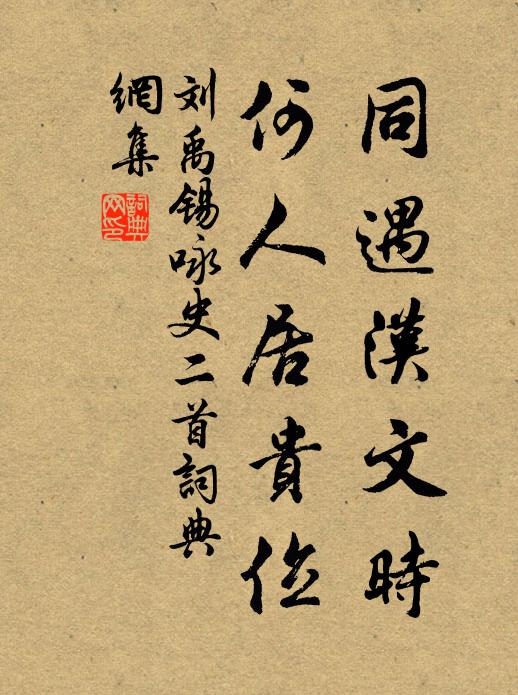 同遇漢文時
何人居貴位
刘禹锡咏史二首詞典
網集
詞典
网印